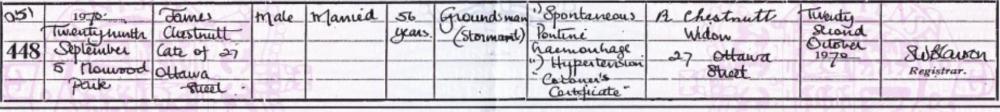 051
448
1970
Twenty ninth
September
5 Norwood
Park
James
Chestnutt
Late of 27
Ottawa
Street
Male
Married
56
years.
Groundsman
(Stormont)
i) Spontaneous
Pontine
haemorrhage
ii) Hypertension
"Coroner's
Certificate"
R. Chestnutt
Widow
27 Ottawa
Street
Twenty
Second
October
1970
Registrar.